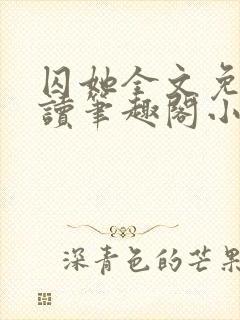 囚她全文免
讀筆趣閣小
深青色的芒果